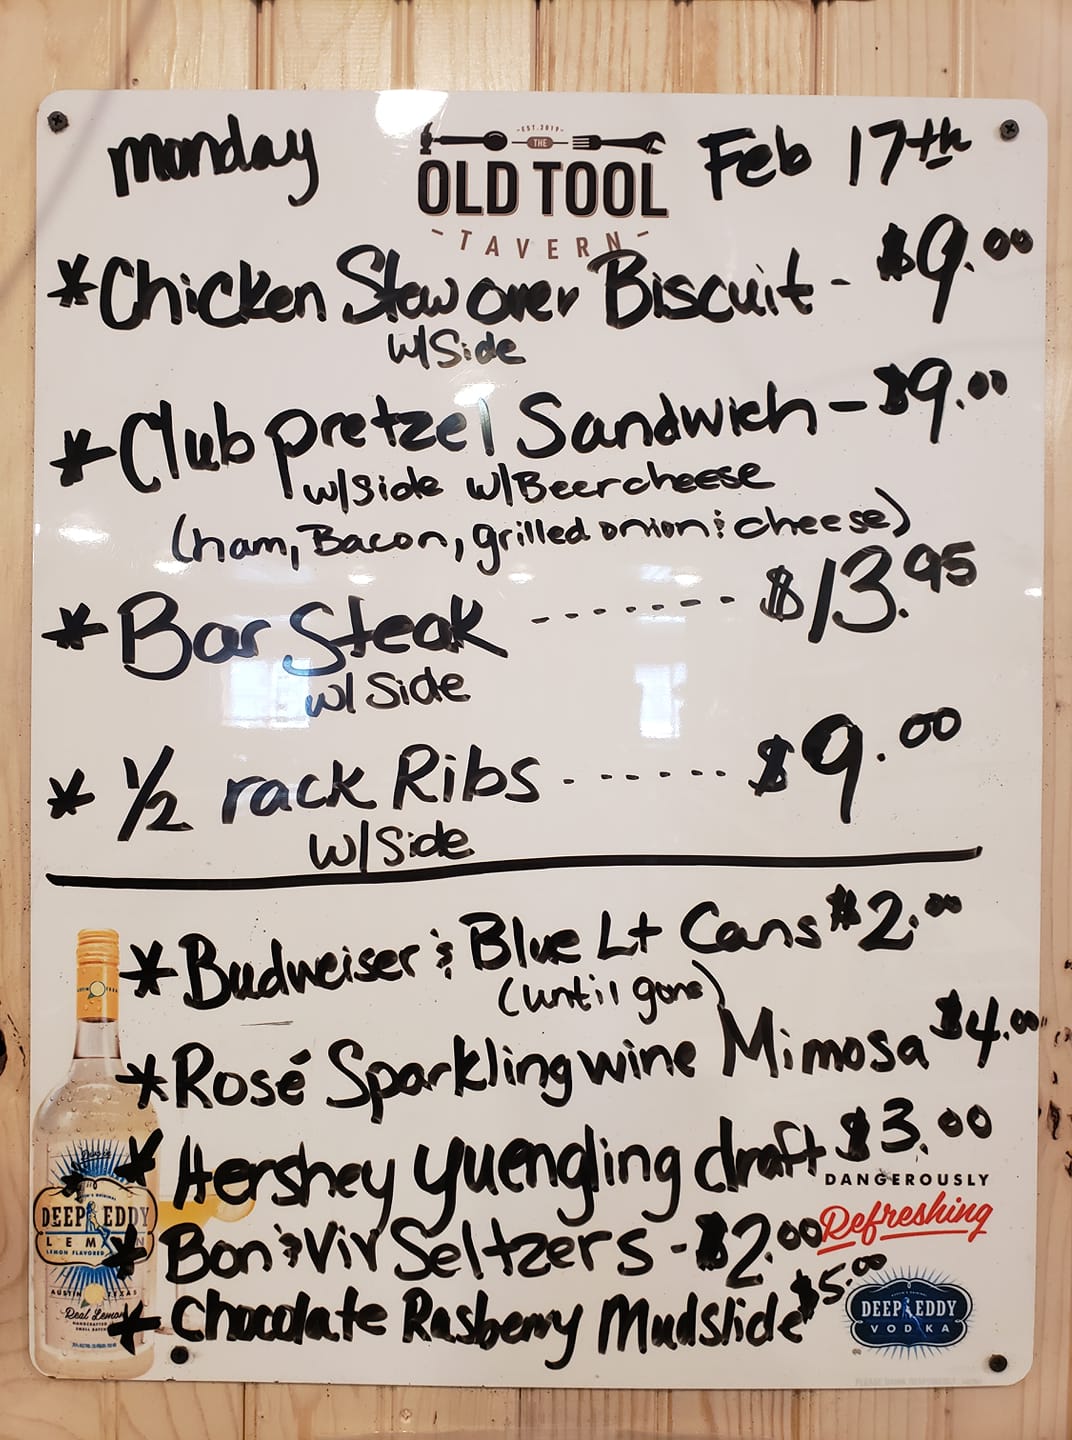 monday
-EST.2019-
THE
OLD TOOL
-TAVERN-
Feb 17th
*Chicken Stew over Biscuit - $9.00
w/Side
*Club pretzel Sandwich - $9.00
w/side w/Beercheese
(ham, Bacon, grilled onion & cheese)
*Bar Steak --------- $13.95
w/ Side
*1/2 rack Ribs ------- $9.00
w/Side
*Budweiser & Blue Lt Cans $2.00
(until gone)
*Rosé Sparkling wine Mimosa $4.00
*Hershey Yuengling draft $3.00
DANGEROUSLY
Refreshing
*Bon & Viv Seltzers - $2.00
*Chocolate Rasberry Mudslide $5.00
DEEP EDDY
LEMON
LEMON FLAVORED
AUSTIN TEXAS
Real Lemon
DEEP EDDY
VODKA